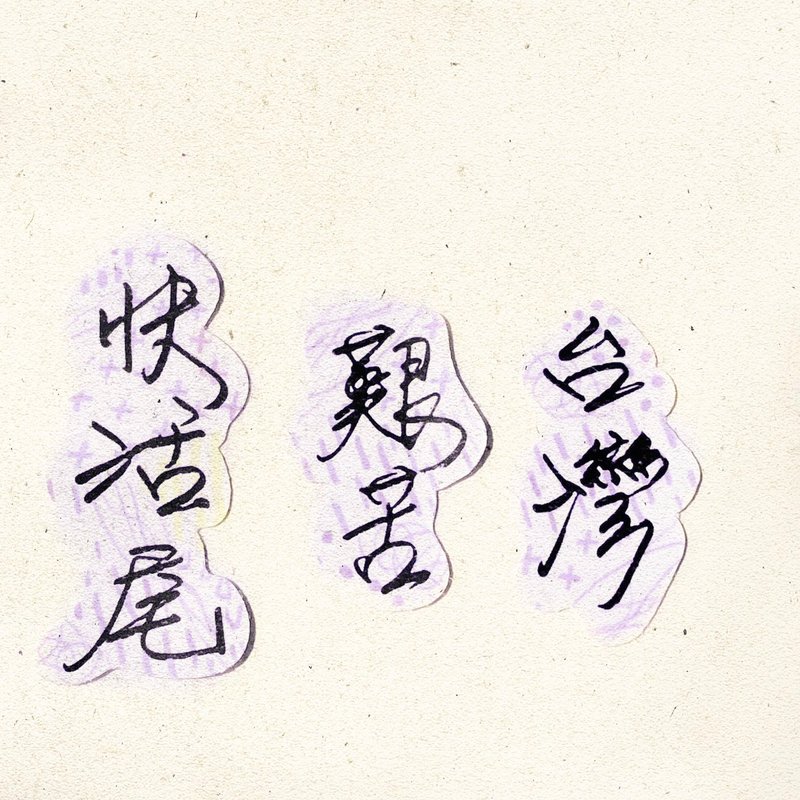 台灣
艱苦
快活尾